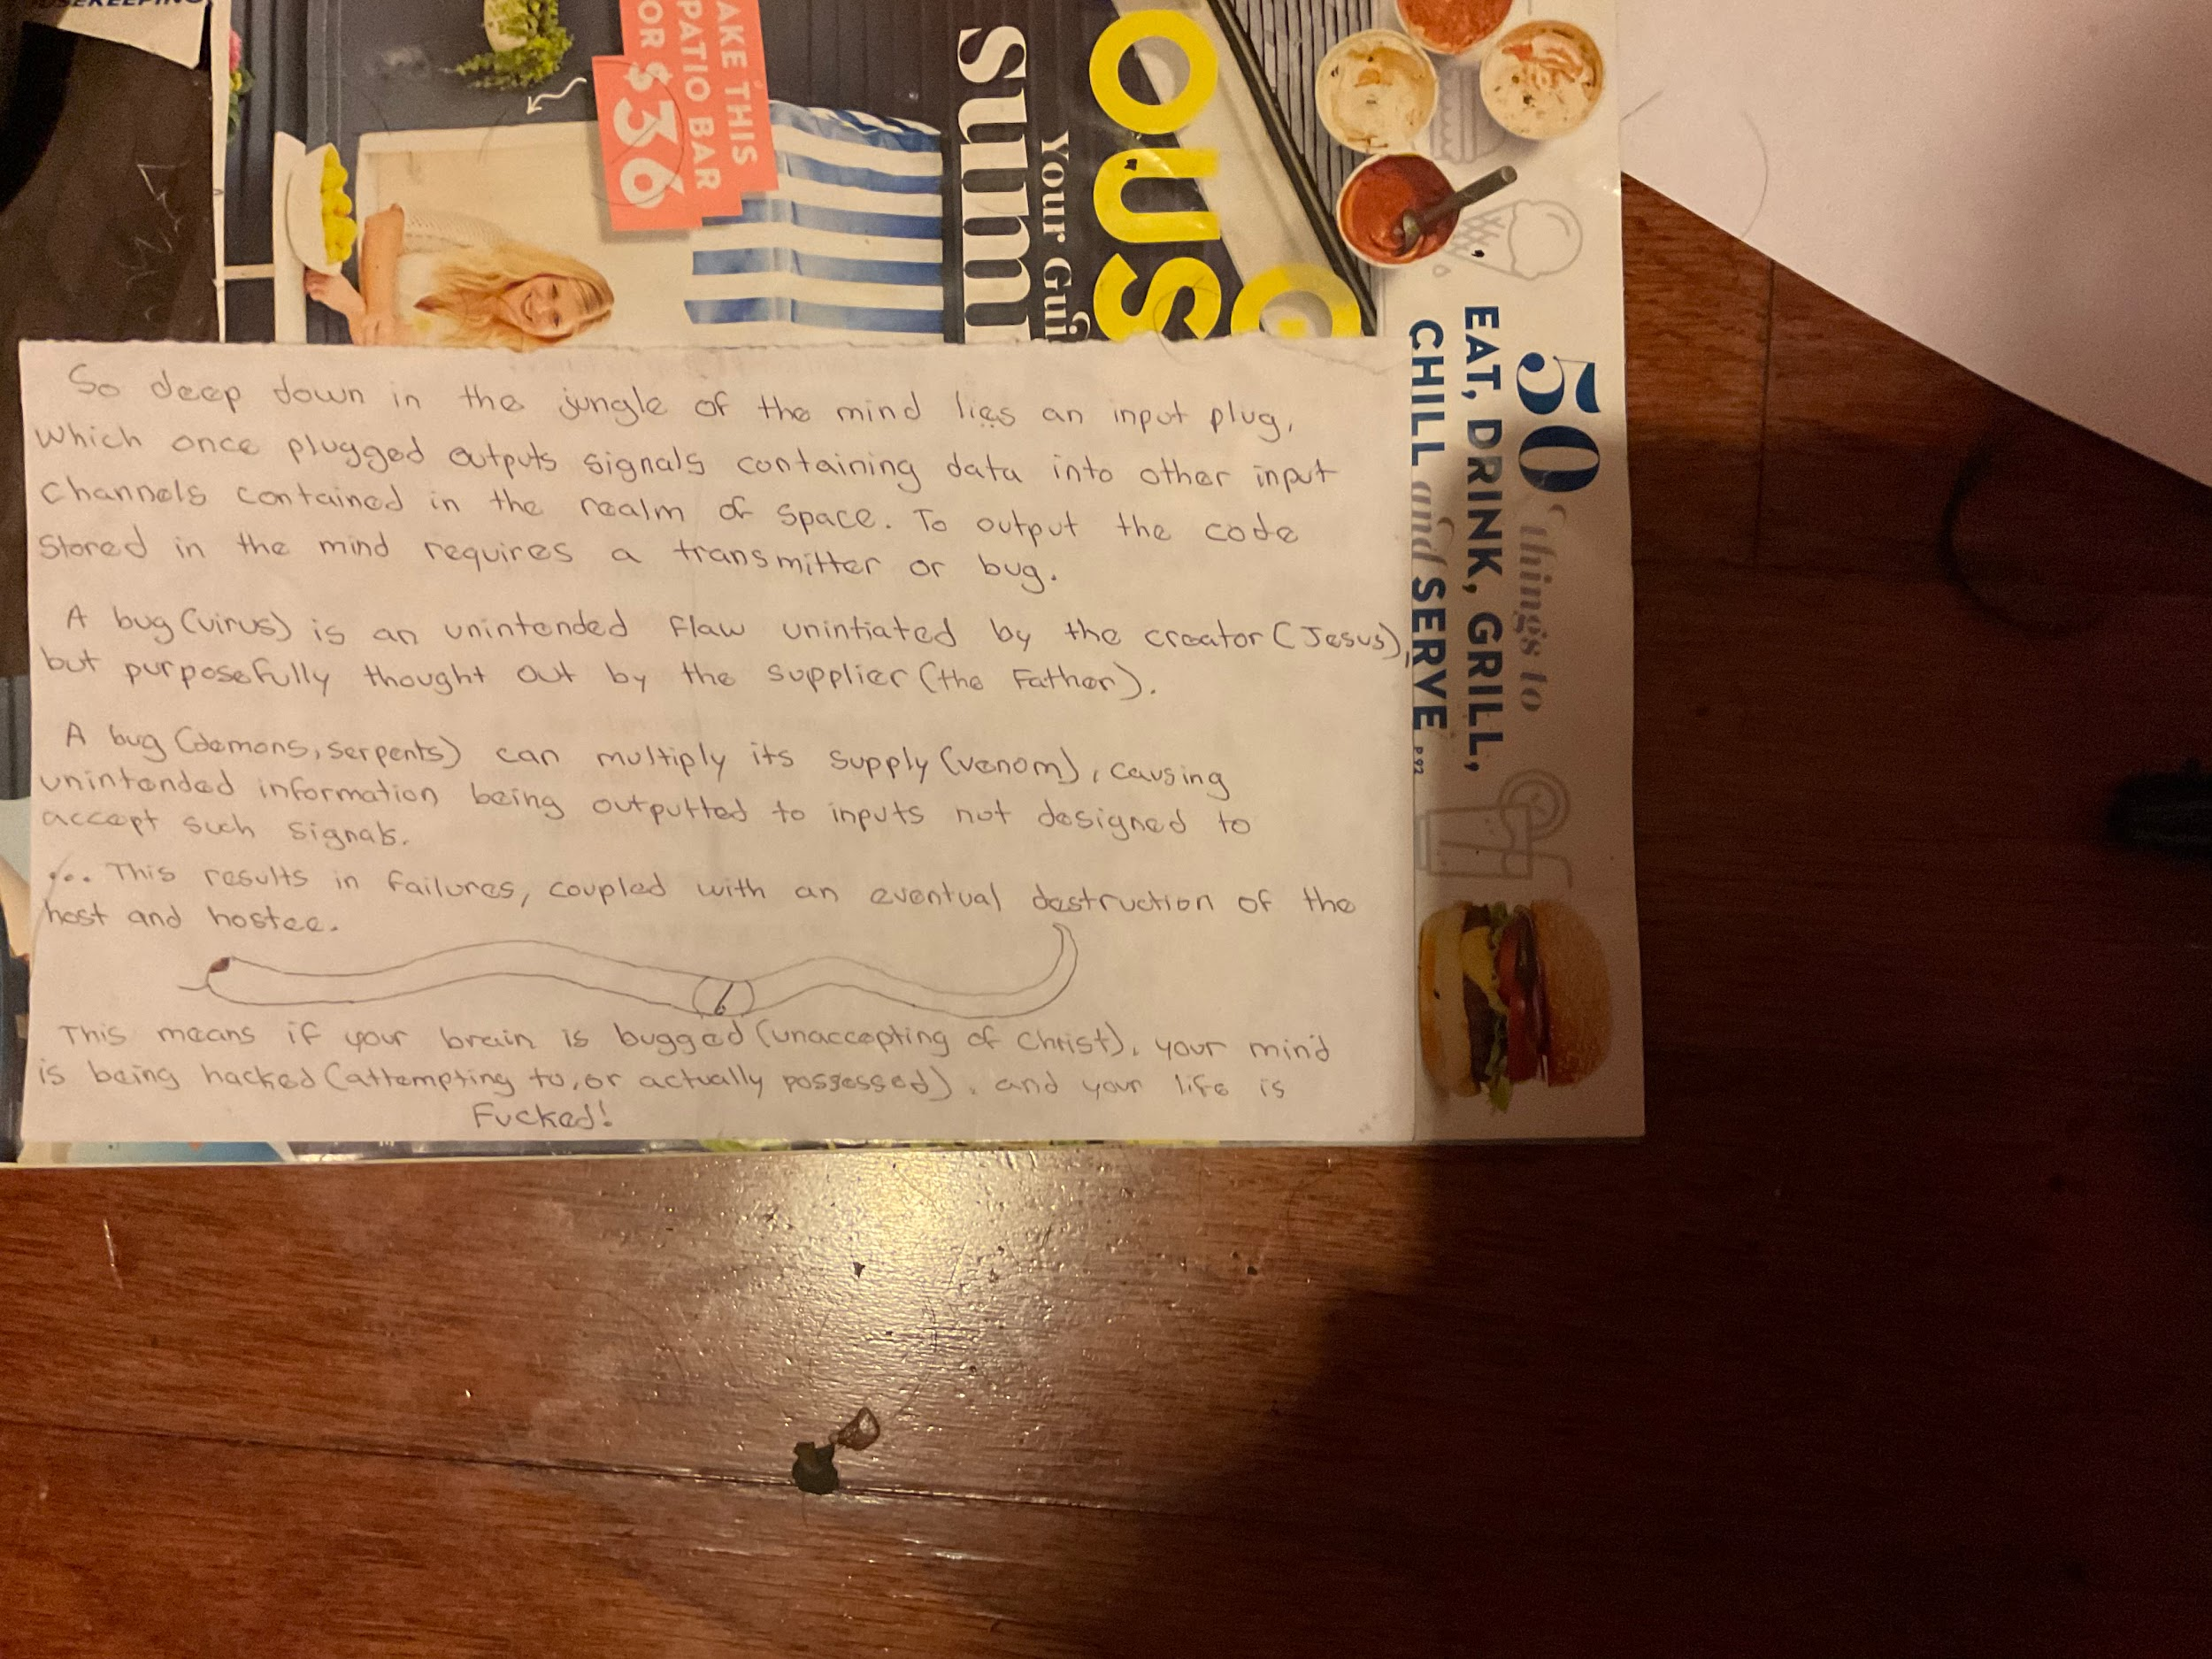 OUSEKEEPING
AKE THIS
PATIO BAR
OR $36
Your Gui
summ
OUS
50 things to
EAT, DRINK, GRILL,
CHILL and SERVE P.92
So deep down in the jungle of the mind lies an input plug,
which once plugged outputs signals containing data into other input
channels contained in the realm of space. To output the code
stored in the mind requires a transmitter or bug.
A bug (virus) is an unintended flaw unintiated by the creator (Jesus),
but purposefully thought out by the supplier (the Father).
A bug (demons, serpents) can multiply its supply (venom), causing
unintended information being outputted to inputs not designed to
accept such signals.
... This results in failures, coupled with an eventual destruction of the
host and hostee.
This means if your brain is bugged (unaccepting of Christ), your mind
is being hacked (attempting to, or actually possessed), and your life is
Fucked!